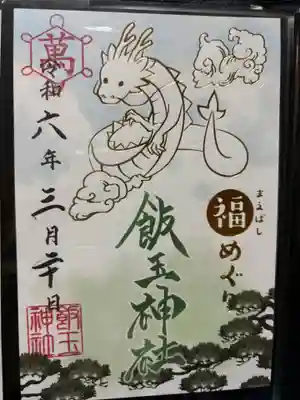 萬
令和六年三月二十日
飯玉神社
まえばし
福めぐり
飯玉
神社